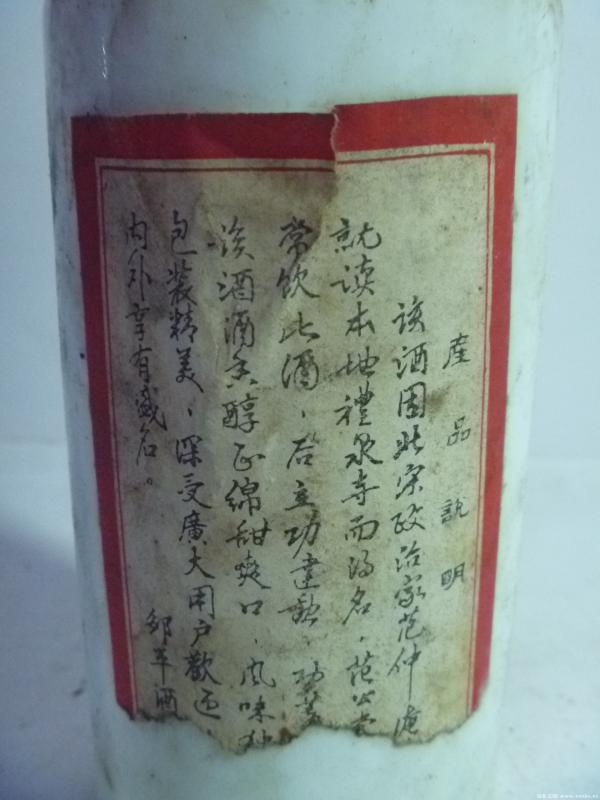 産品説明
该酒因北宋政治家范仲淹
就读本地禮泉寺而得名，范公
常饮此酒，后立功建勋，功蓋
该酒酒香醇正绵甜爽口，风味独
包装精美，深受廣大用户歡迎，
内外享有盛名。
邹平酒